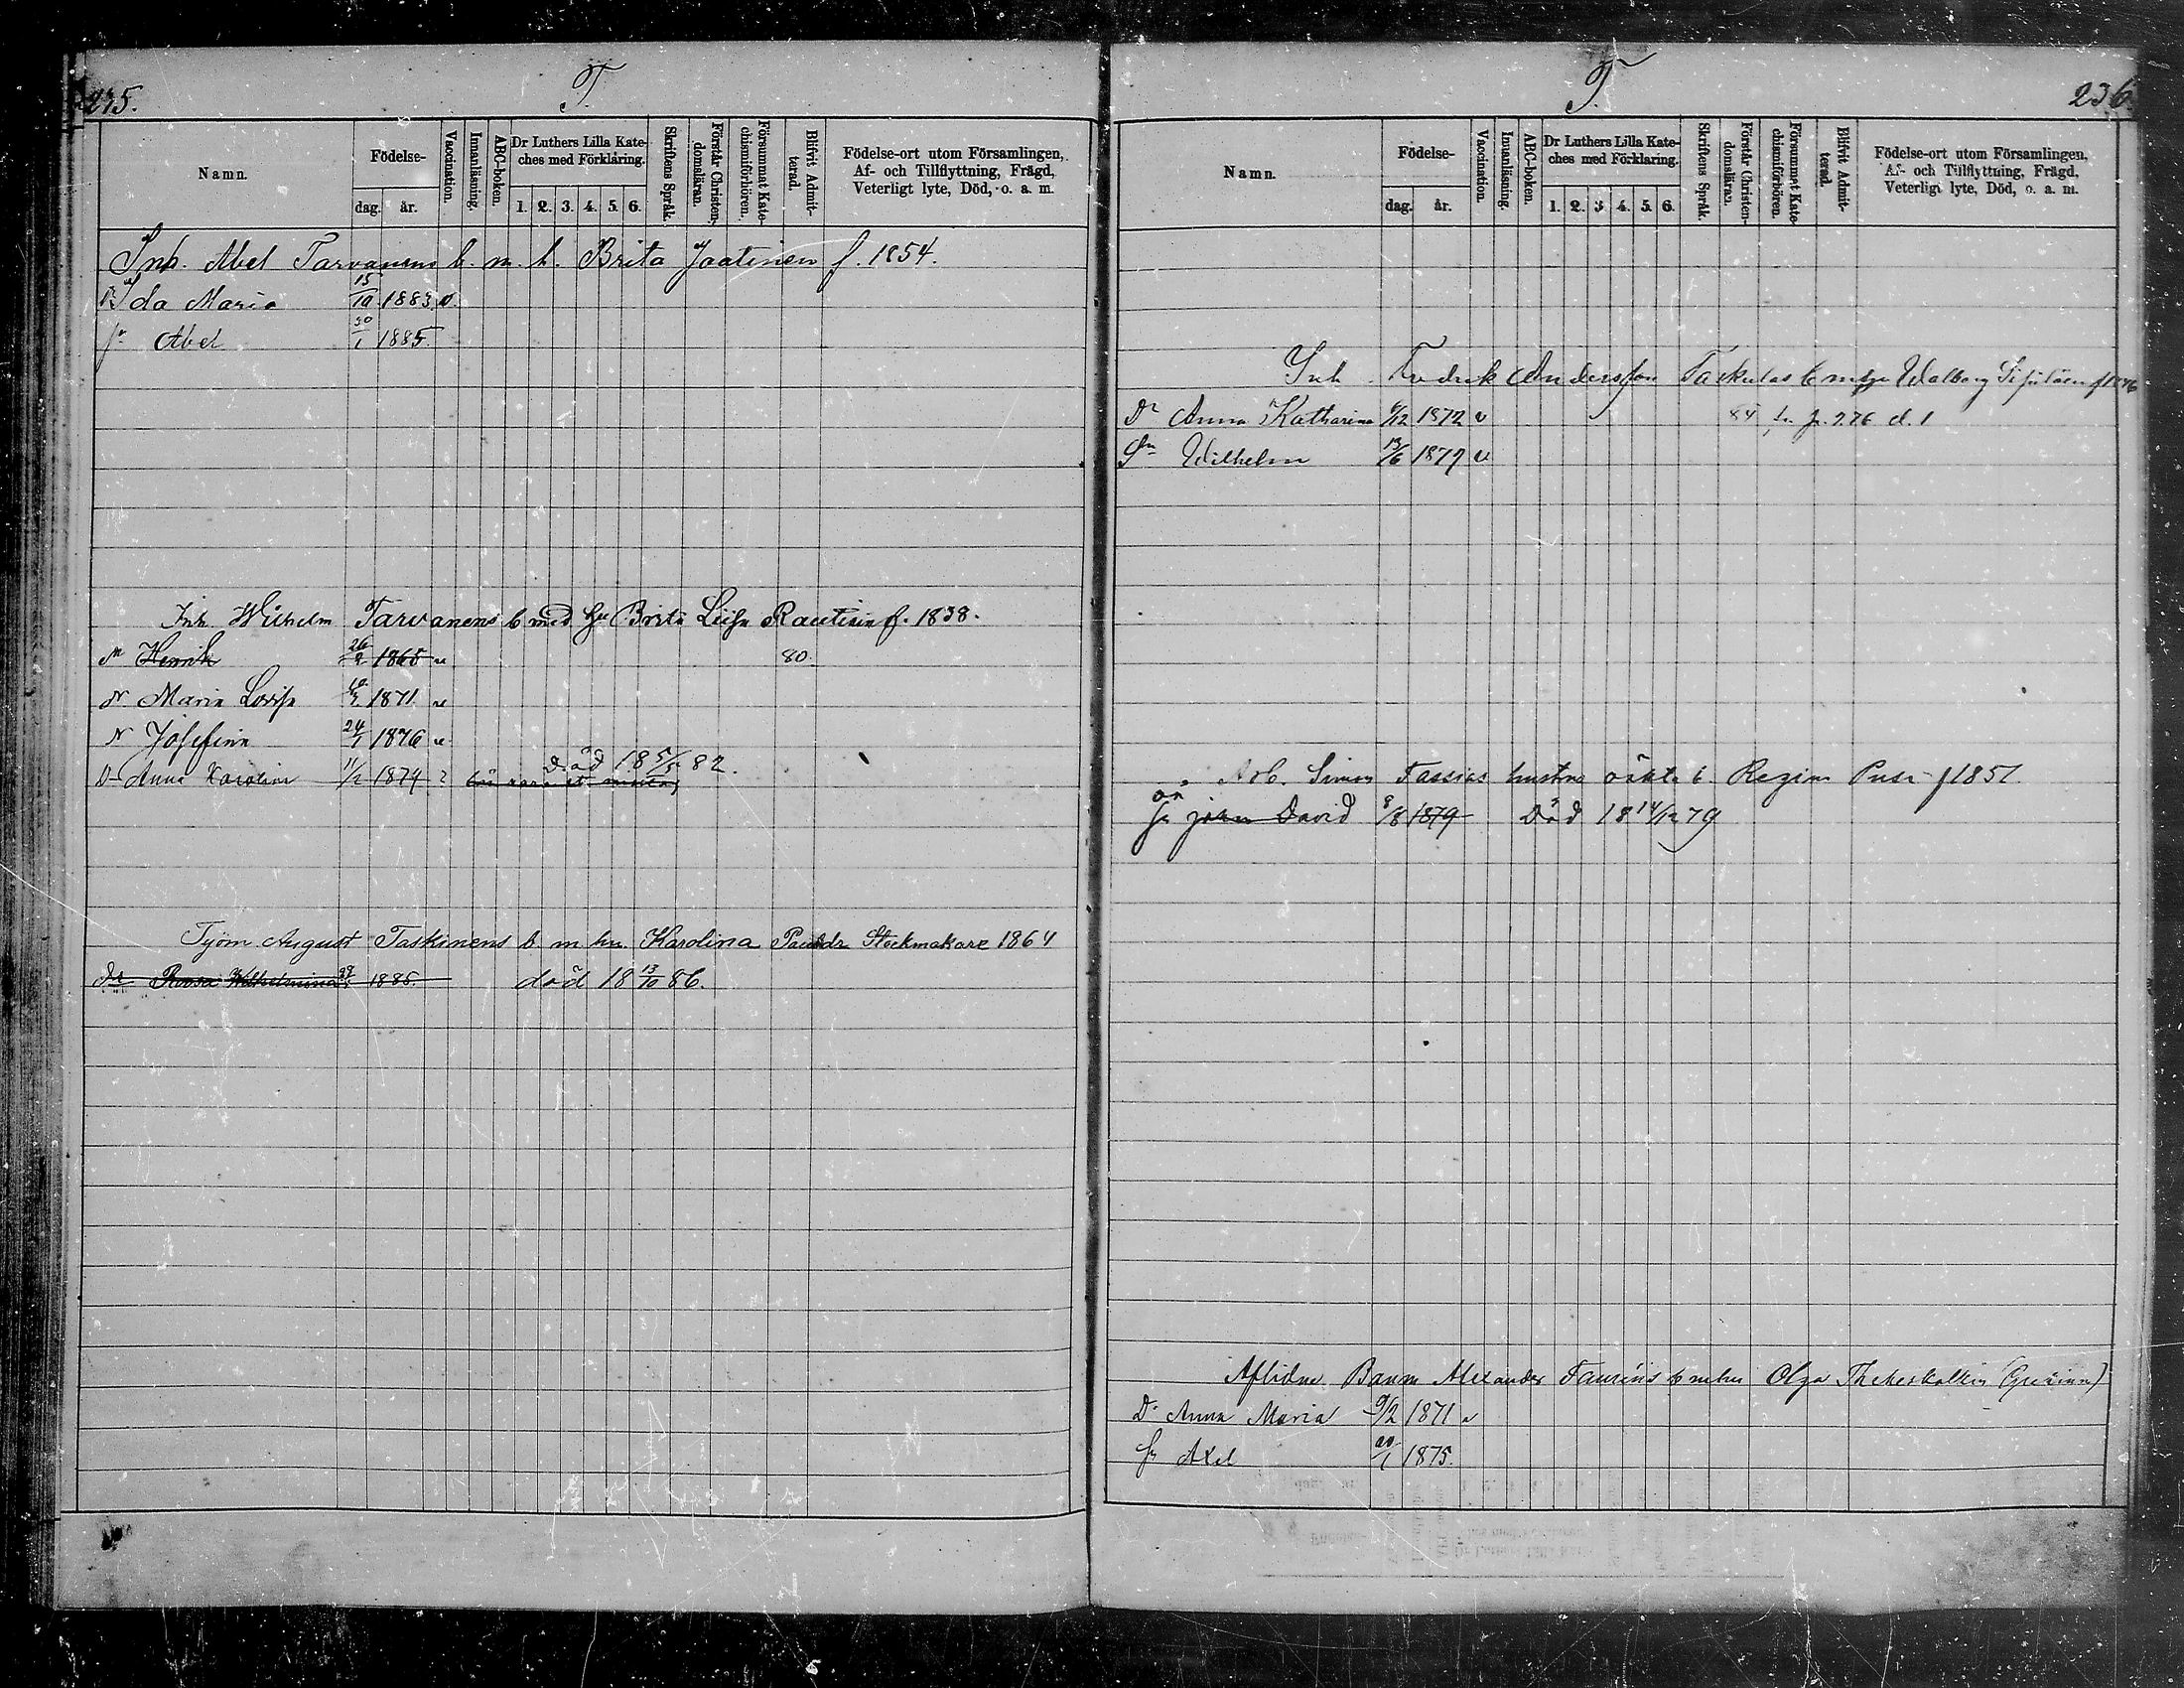 235.
T.
Namn.
Födelse-
dag.
år.
Vaccination.
Innanläsning.
ABC-boken.
Dr Luthers Lilla Kate-
ches med Förklaring.
1. 2. 3. 4. 5. 6.
Skriftens Språk.
Förstår Christen-
domsläran.
Försummat Kate-
chismiförhören.
Blifvit Admit-
terad.
Födelse-ort utom Församlingen,
Af- och Tillflyttning, Frägd,
Veterligt lyte, Död, o. a. m.
Inh. Abel Tarvanens b. m. h. Brita Jaatinen f. 1854.
Dr Ida Maria 15/10 1883 v.
Sn Abel 30/1 1885.
Inh. Wilhelm Tarvanens b med hu Brita Liisa Rautiain f. 1838.
Henrik 26/2 1865 v 80.
Maria Lovisa 1871 v
Josefina 24/1 1876 v
Död 18 5/5 82.
Dr Anna Karolina 11/2 1879
Tjöm August Taskinens b m hu. Karolina Stockmakare 1864
Dr Roosa Wilhelmina 1885. död 18 13/10 86.
T.
236.
Namn.
Födelse-
dag.
år.
Vaccination.
Innanläsning.
ABC-boken.
Dr Luthers Lilla Kate-
ches med Förklaring.
1. 2. 3. 4. 5. 6.
Skriftens Språk.
Förstår Christen-
domsläran.
Försummat Kate-
chismiförhören.
Blifvit Admit-
terad.
Födelse-ort utom Församlingen,
Af- och Tillflyttning, Frägd,
Veterligt lyte, Död, o. a. m.
Inh. Fredrik Andersson b m Walborg
Dr Anna Katharina 6/12 1872 v 84 p. 276 d. 1
Sn Wilhelm 13/6 1879 v
Arb. Simon Tassias hustru oäkta b. Regina Pusa f 1851
oä
Sn David 8/8 1879 Död 18 14/12 79
Aflidne Banm Alexander b m hu Olga
Dr Anna Maria 9/2 1871 v
Sn Axel 20/1 1875.